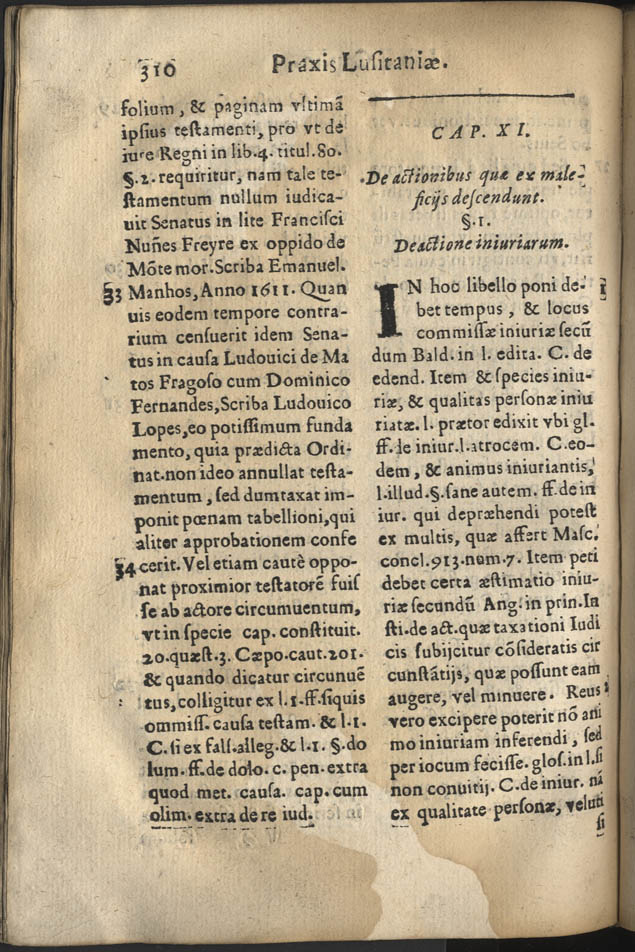 310
Praxis Lusitaniæ.
folium, & paginam vltimã
ipsius testamenti, pro vt de
iure Regni in lib.4. titul.80.
§.2. requiritur, nam tale te-
stamentum nullum iudica-
uit Senatus in lite Francisci
Nuñes Freyre ex oppido de
Mõte mor. Scriba Emanuel.
33 Manhos, Anno 1611. Quan
uis eodem tempore contra-
rium censuerit idem Sena-
tus in causa Ludouici de Ma
tos Fragoso cum Dominico
Fernandes, Scriba Ludouico
Lopes, eo potissimum funda
mento, quia prædicta Ordi-
nat. non ideo annullat testa-
mentum, sed dumtaxat im-
ponit pœnam tabellioni, qui
aliter approbationem confe
34 cerit. Vel etiam cautè oppo-
nat proximior testatorẽ fuis
se ab actore circumuentum,
vt in specie cap. constituit.
20. quæst.3. Cæpo. caut.201.
& quando dicatur circunuẽ
tus, colligitur ex l.1. ff. siquis
ommiss. causa testam. & l.1.
C. si ex fals. alleg. & l.1. §. do
lum. ff. de dolo. c. pen. extra
quod met. causa. cap. cum
olim. extra de re iud.
CAP. XI.
De actionibus quæ ex male-
ficijs descendunt.
§.1.
De actione iniuriarum.
IN hoc libello poni de-
bet tempus, & locus
commissæ iniuriæ secũ
dum Bald. in l. edita. C. de
edend. Item & species iniu-
riæ, & qualitas personæ iniu
riatæ. l. prætor edixit vbi gl.
ff. de iniur. l. atrocem. C. eo-
dem, & animus iniuriantis,
l. illud. §. sane autem. ff. de in
iur. qui depræhendi potest
ex multis, quæ affert Masc.
concl.913. num.7. Item peti
debet certa æstimatio iniu-
riæ secundũ Ang. in prin. In
sti. de act. quæ taxationi Iudi
cis subijcitur cõsideratis cir
cunstãtijs, quæ possunt eam
augere, vel minuere. Reus
vero excipere poterit nõ ani
mo iniuriam inferendi, sed
per iocum fecisse. glos. in l. si
non conuitij. C. de iniur. nã
ex qualitate personæ, veluti
si